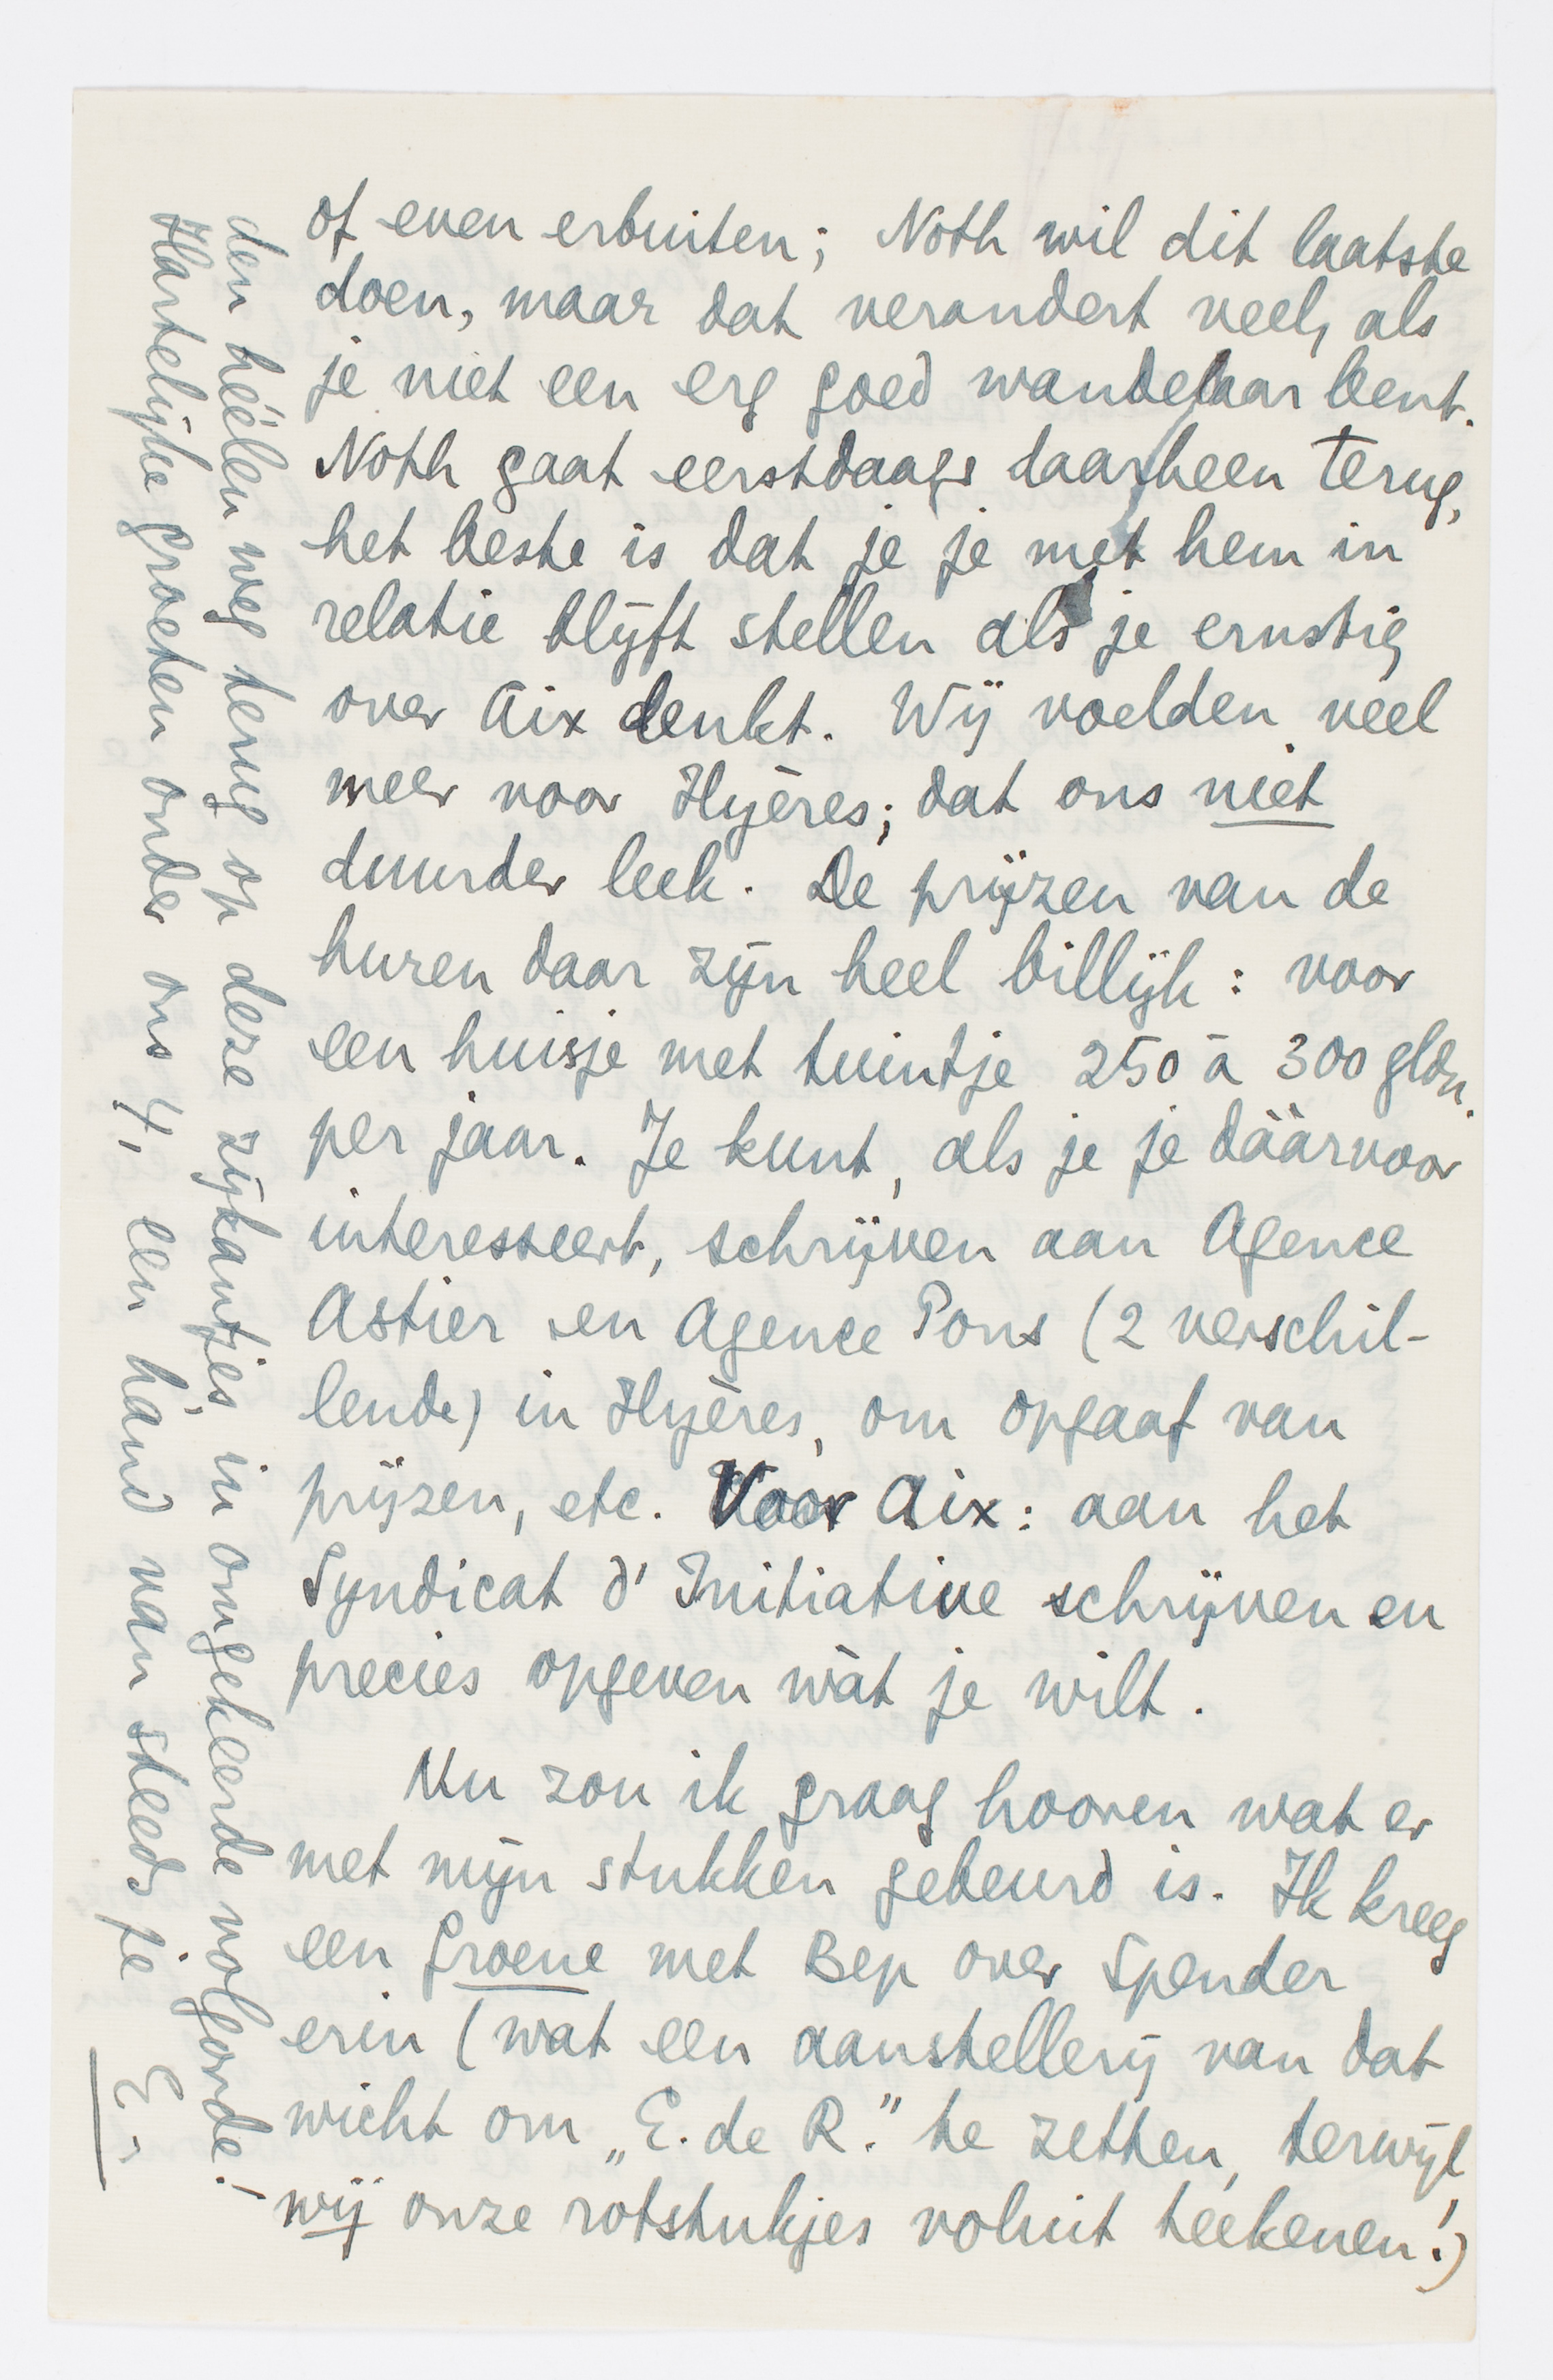 of even erbuiten; Noth wil dit laatste
doen, maar dat verandert veel, als
je niet een erg goed wandelaar bent.
Noth gaat eerstdaags daarheen terug,
het beste is dat je je met hem in
relatie blijft stellen als je ernstig
over Aix denkt. Wij voelden veel
meer voor Hyères; dat ons niet
duurder leek. De prijzen van de
huren daar zijn heel billijk: voor
een huisje met tuintje 250 à 300 gldn.
per jaar. Je kunt, als je je dáárvoor
interesseert, schrijven aan Agence
Astier en Agence Pons (2 verschil-
lende) in Hyères, om opgaaf van
prijzen, etc. Voor Aix: aan het
Syndicat d'Initiative schrijven en
precies opgeven wàt je wilt.
Nu zou ik graag hooren wat er
met mijn stukken gebeurd is. Ik kreeg
een Groene met Bep over Spender
erin (wat een aanstellerij van dat
wicht om „E. de R." te zetten, terwijl
wij onze rotstukjes voluit teekenen!)
den héélen weg terug op deze zijkantjes, in omgekeerde volgorde!
Hartelijke groeten onder ons 4, een hand van steeds je
E.